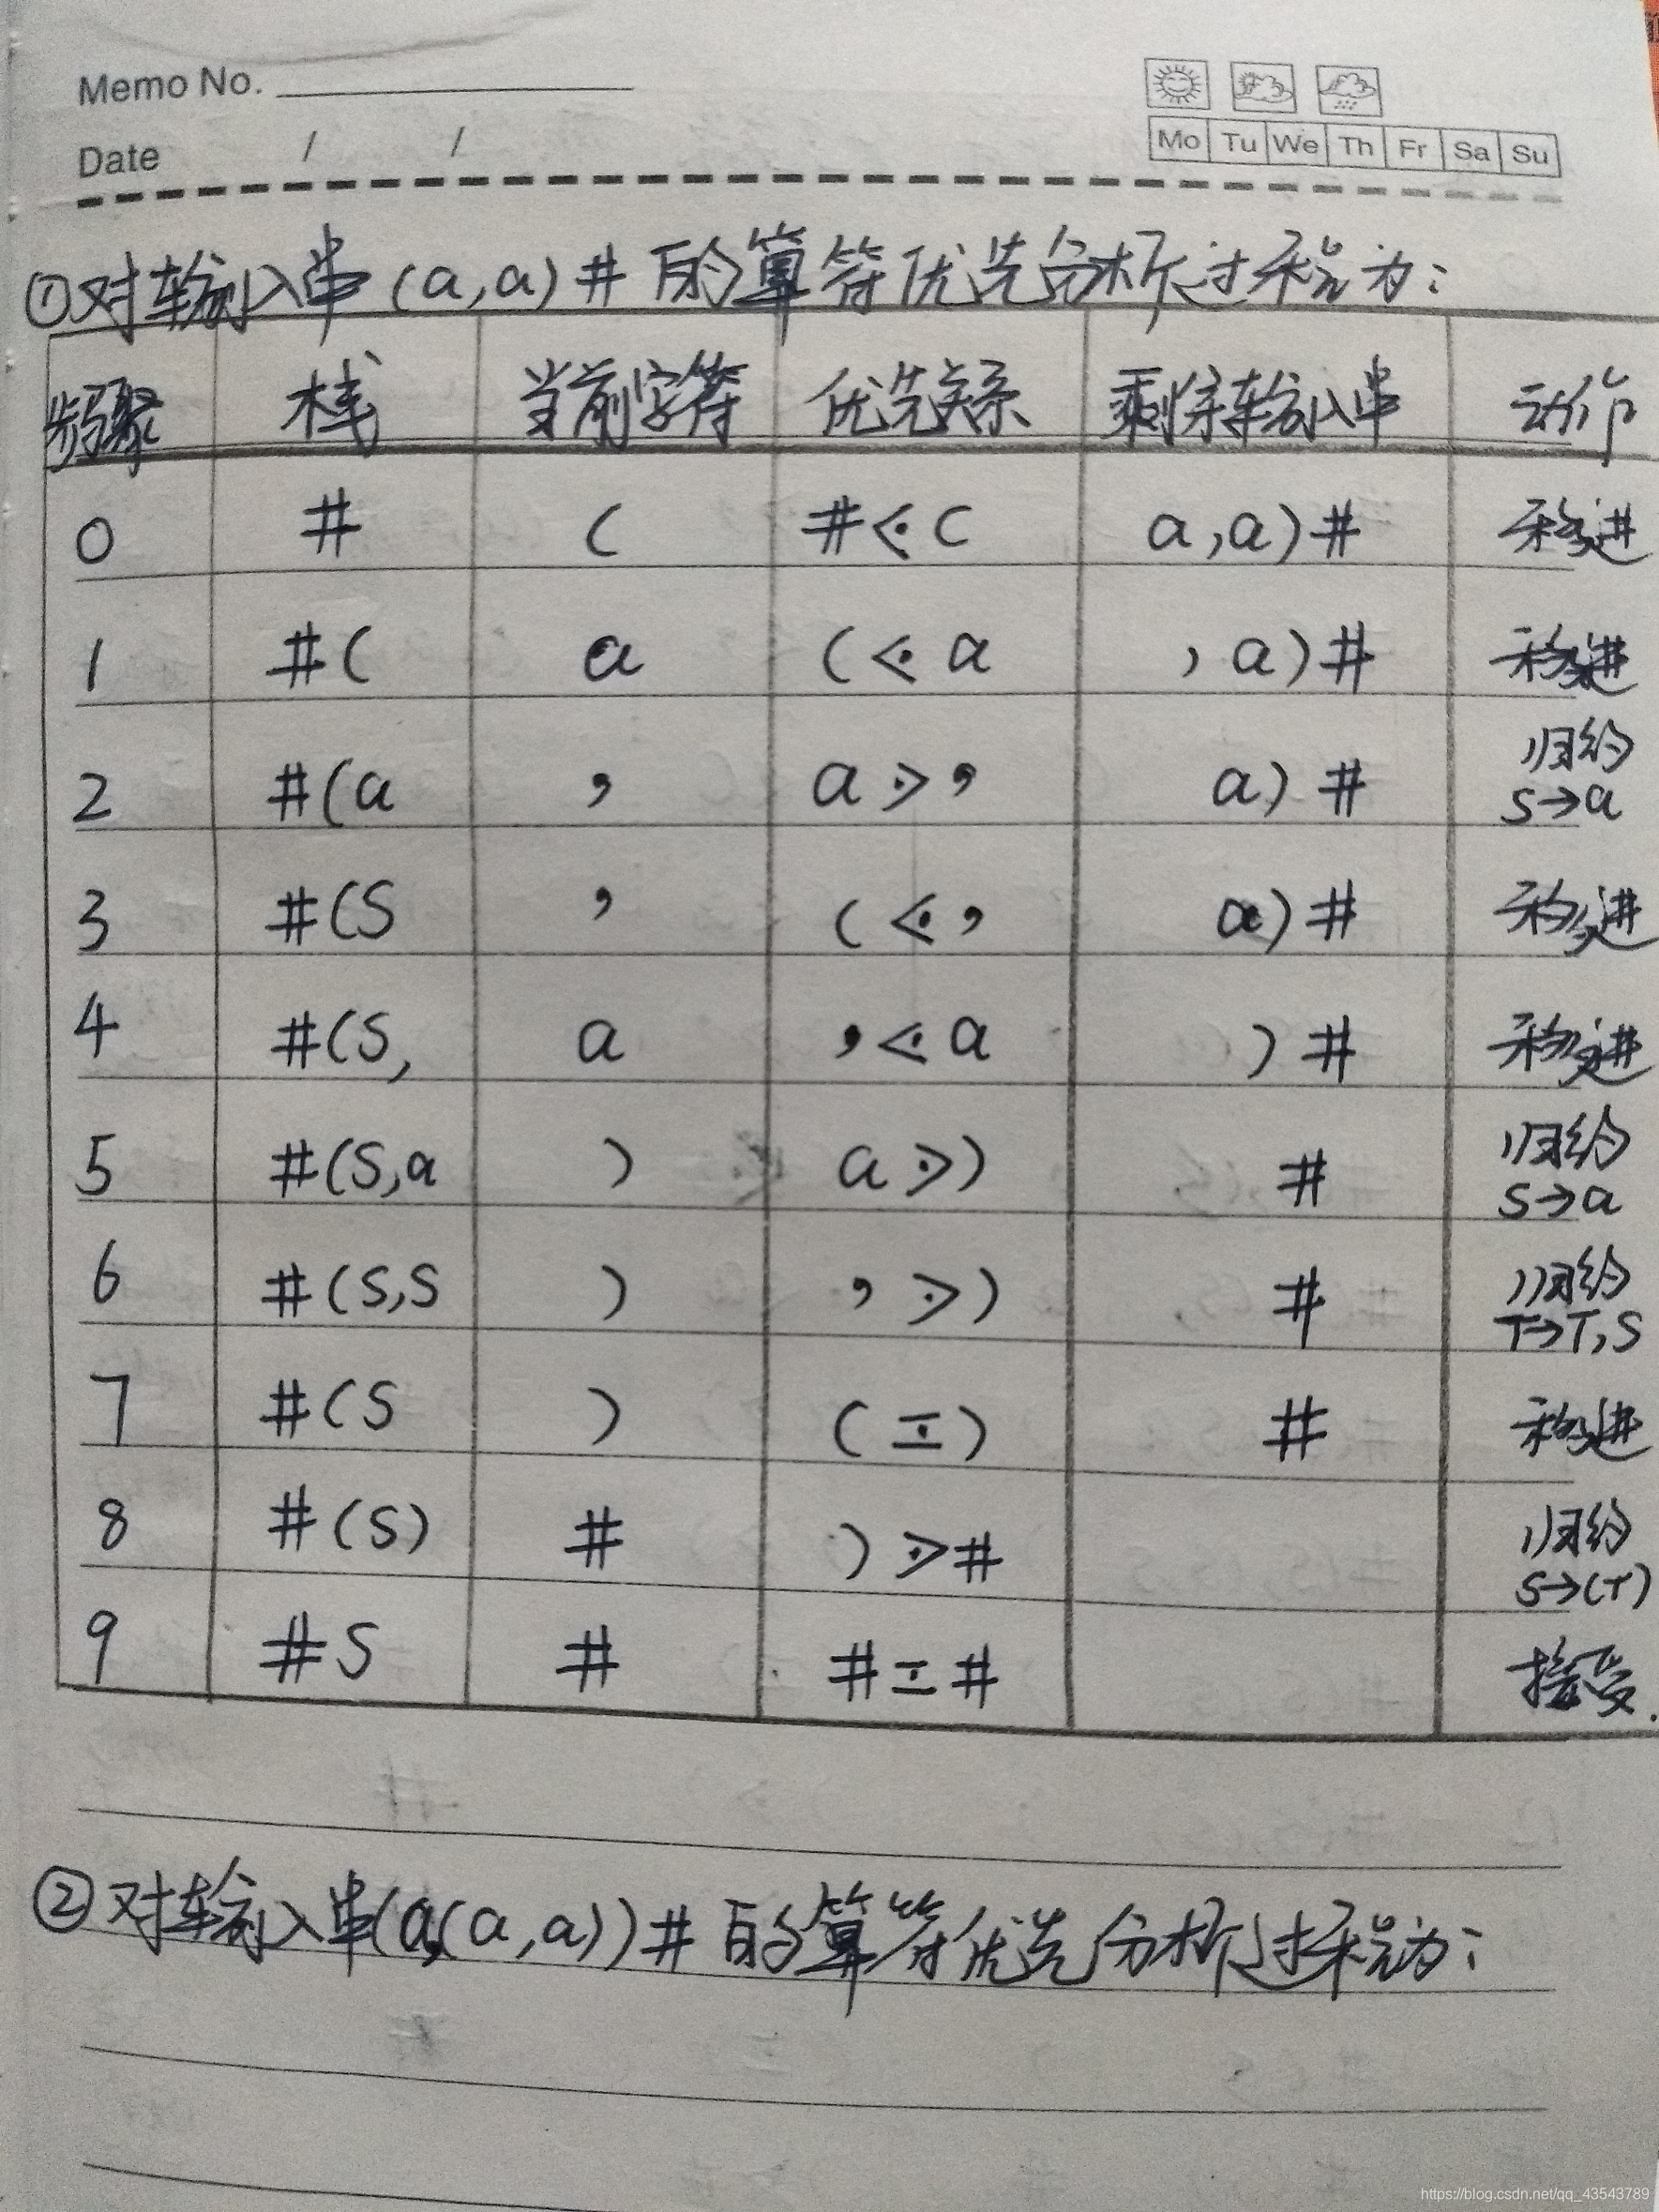 Memo No.
Date / /
Mo Tu We Th Fr Sa Su
①对输入串(a,a)#的算符优先分析过程为:
步骤 栈 当前字符 优先关系 剩余输入串 动作
0 # ( #⋖( a,a)# 移进
1 #( a (⋖a ,a)# 移进
2 #(a , a⋗, a)# 归约 S→a
3 #(S , (⋖, a)# 移进
4 #(S, a ,⋖a )# 移进
5 #(S,a ) a⋗) # 归约 S→a
6 #(S,S ) ,⋗) # 归约 T→T,S
7 #(S ) (≖) # 移进
8 #(S) # )⋗# 归约 S→(T)
9 #S # #≖# 接受.
②对输入串(a,(a,a))#的算符优先分析过程为:
https://blog.csdn.net/qq_43543789